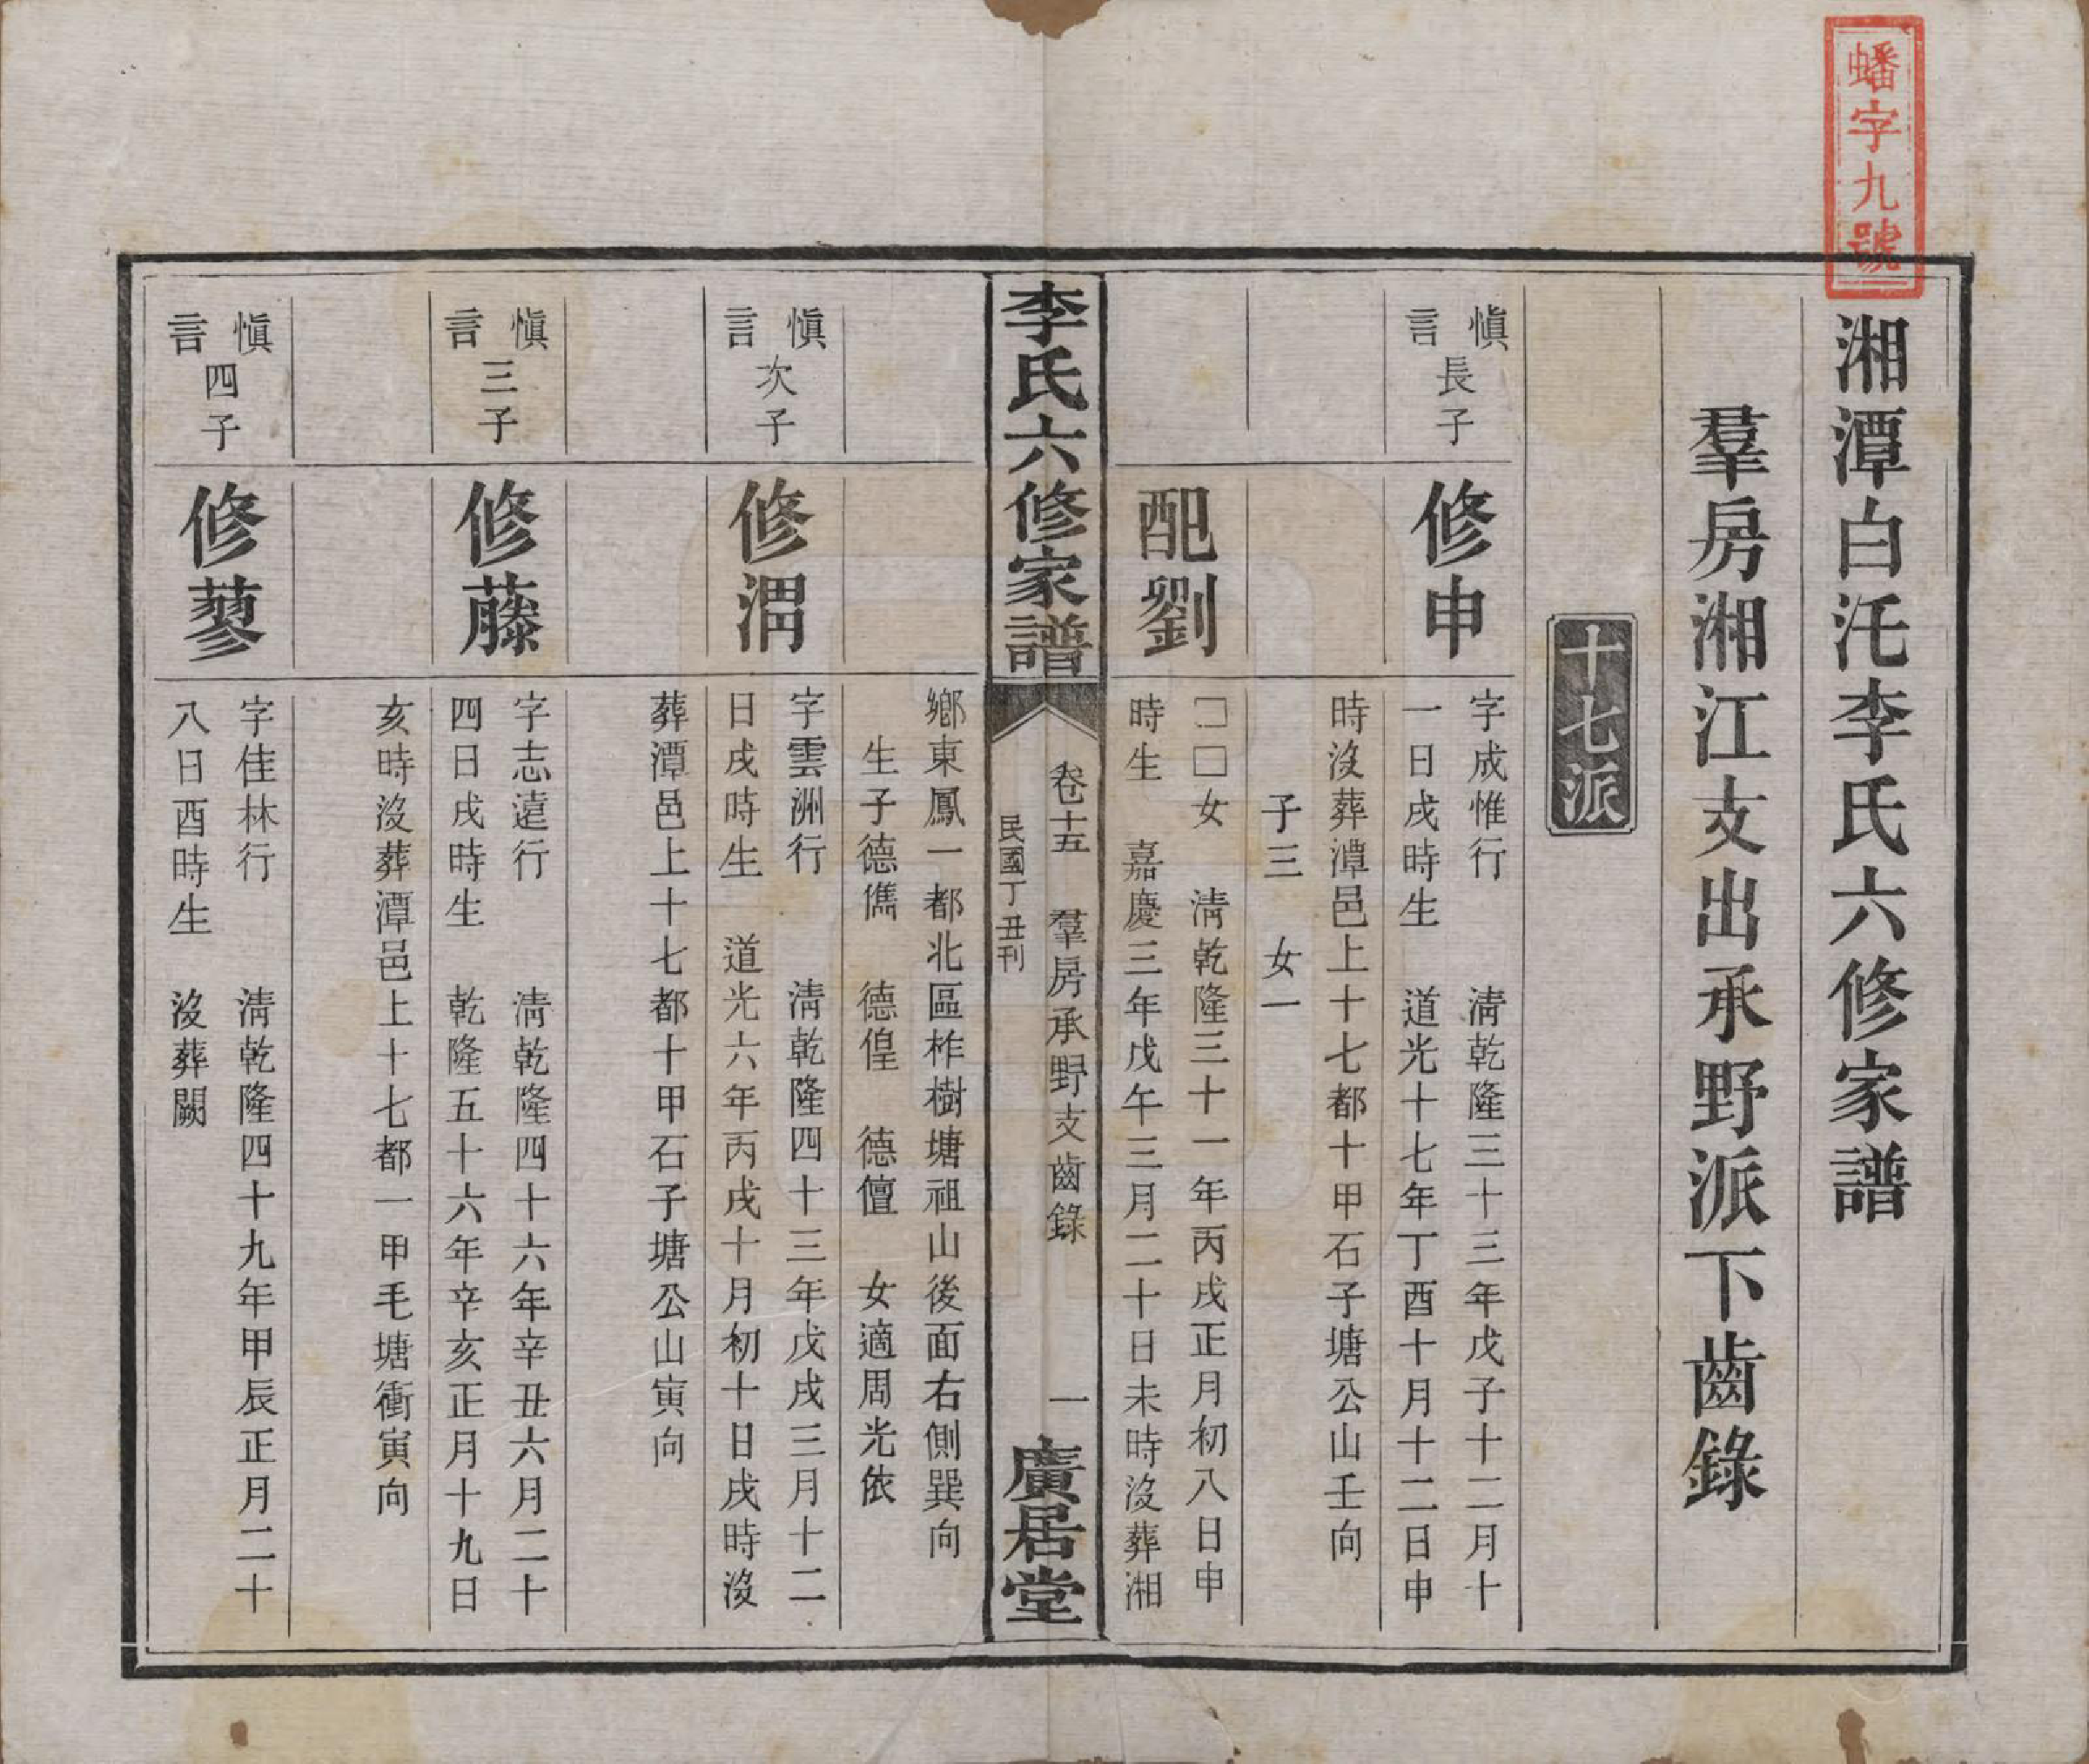 蟠字九號
湘潭白汑李氏六修家譜
羣房湘江支出承野派下齒錄
十七派
愼言長子
修申
字成惟行　淸乾隆三十三年戊子十二月十
一日戌時生　道光十七年丁酉十月十二日申
時沒葬潭邑上十七都十甲石子塘公山壬向
子三　女一
配劉
□□女　淸乾隆三十一年丙戌正月初八日申
時生　嘉慶三年戊午三月二十日未時沒葬湘
李氏六修家譜
卷十五　羣房承野支齒錄　一
民國丁丑刊
廣居堂
鄉東鳳一都北區柞樹塘祖山後面右側巽向
生子德儁　德偟　德儃　女適周光依
愼言次子
修渭
字雲洲行　淸乾隆四十三年戊戌三月十二
日戌時生　道光六年丙戌十月初十日戌時沒
葬潭邑上十七都十甲石子塘公山寅向
愼言三子
修藤
字志遠行　淸乾隆四十六年辛丑六月二十
四日戌時生　乾隆五十六年辛亥正月十九日
亥時沒葬潭邑上十七都一甲毛塘衝寅向
愼言四子
修蓼
字佳林行　淸乾隆四十九年甲辰正月二十
八日酉時生　沒葬闕